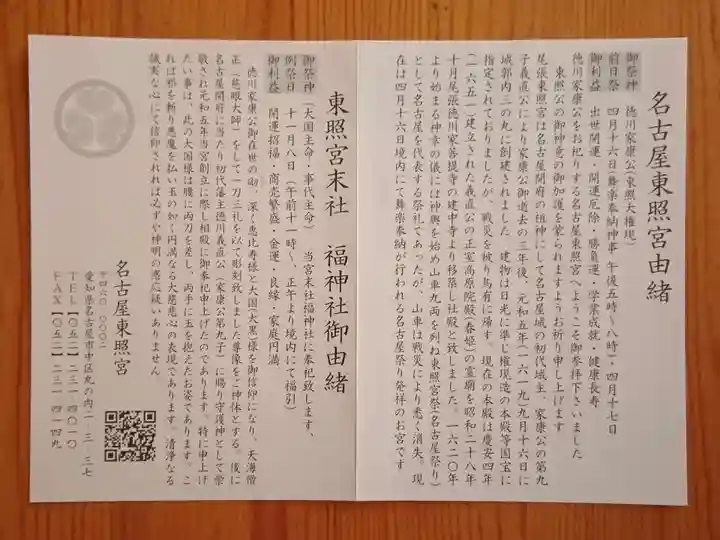 名古屋東照宮由緒
御祭神 徳川家康公(東照大権現)
前日祭 四月十六日(舞楽奉納神事 午後五時〜八時)・四月十七日
御利益 出世開運・開運厄除・勝負運・学業成就・健康長寿
徳川家康公をお祀りする名古屋東照宮へようこそ御参拝下さいました
東照公の御神意の御加護を蒙られますようお祈り申し上げます
尾張東照宮は名古屋開府の祖神にして名古屋城の初代城主、家康公の第九
子義直公により家康公御逝去の三年後、元和五年(一六一九)九月十六日に
城郭内三の丸に創建されました 建物は日光に準じ権現造の本殿等国宝に
指定されておりましたが、戦災を被り烏有に帰す。現在の本殿は慶安四年
(一六五一)建立された義直公の正室高原院殿(春姫)の霊廟を昭和二十八年
十月尾張徳川家菩提寺の建中寺より移築し社殿と致しました。一六二〇年
より始まる神幸の儀には神輿を始め山車九両を列ね東照宮祭(名古屋祭り)
として名古屋を代表する祭礼であったが、山車は戦災により悉く消失。現
在は四月十六日境内にて舞楽奉納が行われる名古屋祭り発祥のお宮です
東照宮末社 福神社御由緒
御祭神 (大国主命・事代主命) 当宮末社福神社に奉祀致します、
例祭日 十一月八日(午前十一時〜、正午より境内にて福引)
御利益 開運招福・商売繁盛・金運・良縁・家庭円満
徳川家康公御在世の砌、深く恵比寿様と大国(大黒)様を御信仰になり、天海僧
正(慈眼大師)をして一刀三礼を以て彫刻致しました尊像をご神体とする。後に
名古屋開府に当たり初代藩主徳川義直公(家康公第九子)に賜り守護神として崇
敬され元和五年当宮創立に際し相殿に御奉祀申上げたのであります。特に申上げ
たい事は、此の大国様は腰に両刀を差し、両手に玉を抱えたお姿であります。こ
れは邪を斬り悪魔を払い玉の如く円満なる大慈悲心の表現であります。清浄なる
誠実な心にて信仰されれば必ずや神明の感応疑いありません
名古屋東照宮
〒四六〇-〇〇〇二
愛知県名古屋市中区丸の内二-三-三七
TEL〔〇五二〕二三一-四〇一〇
FAX〔〇五二〕二三一-四一四九